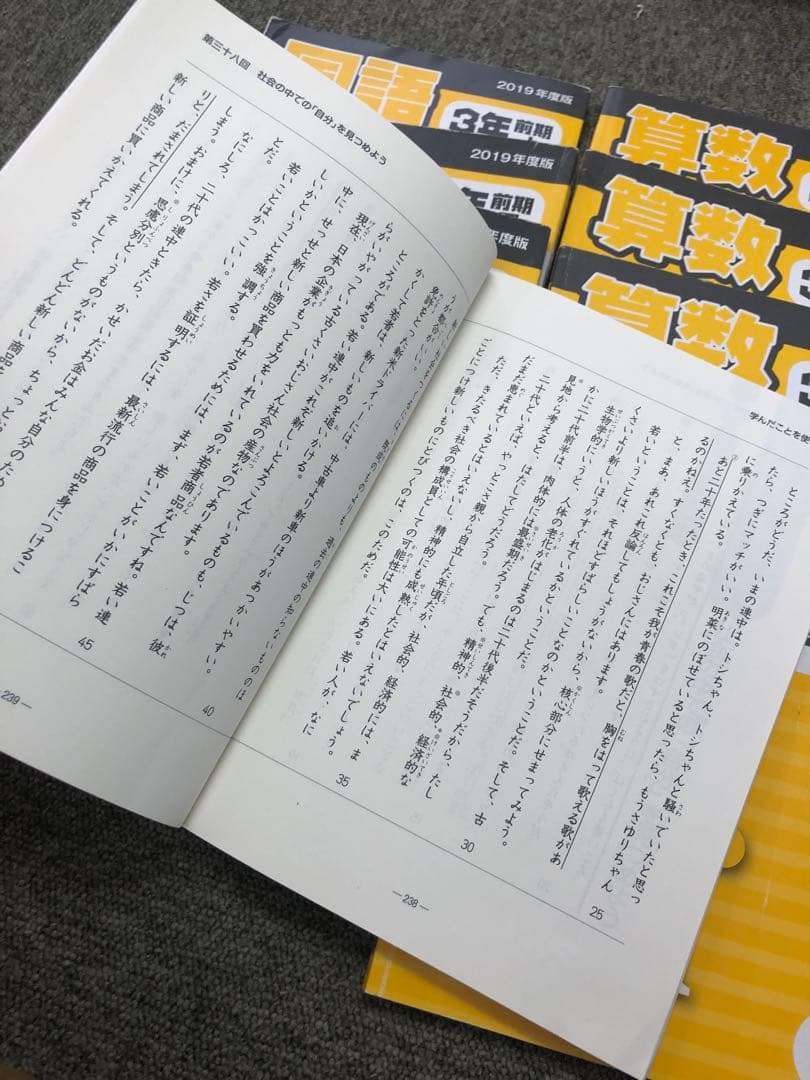 国語
3年前期
2019年度版
2019年度版
年前期
年度版
算数
算数
算数
学んだことを使
ところがどうだ、いまの連中は。トシちゃん、トシちゃんと騒いでいたと思っ
たら、つぎにマッチがいい。明菜にのぼせていると思ったら、もうさゆりちゃん
に乗りかえている。
あと二十年たったとき、これこそ我が青春の歌だと、胸をはって歌える歌があ
るのかねえ。すくなくとも、おじさんにはあります。
と、まあ、あれこれ反論してもしょうがないから、核心部分にせまってみよう。
若いということは、それほどすばらしいことなのかということだ。そして、古
くさいより新しいほうがすぐれているかということだ。
生物学的にいうと、人体の老化がはじまるのは二十代後半だそうだから、たし
かに二十代前半は、肉体的には最盛期だろう。でも、精神的、社会的、経済的な
見地から考えると、はたしてどうだろう。
二十代といえば、やっとこさ親から自立した年頃だが、社会的、経済的には、ま
だまだ恵まれているとはいえないし、精神的にも成熟したとはいえないでしょう。
ただ、きたるべき社会の構成員としての可能性は大いにある。若い人が、なに
ごとにつけ新しいものにとびつくのは、このためだ。
25
30
35
―238―
第三十八回 社会の中での「自分」を見つめよう
うが
免許をとった新米ドライバーには、中古車より新車のほうがあつかいやすい。
かくして若者は、新しいものを追いかける。
ところがである。
らがいやがっている古くさいおじさん社会の産物なのであります。
現在、日本の企業がもっとも力をいれているのが若者商品なんですね。若い連
中に、せっせと新しい商品を買わせるためには、まず、若いことがいかにすばら
しいかということを強調する。
若いことはかっこいい。若さを証明するには、最新流行の商品を身につけるこ
とだ。
なにしろ、二十代の連中ときたら、かせいだお金はみんな自分の
しまう。おまけに、思慮分別というものがないから、ちょっと
りと、だまされてしまう。そして、どんどん新しい商品
新しい商品に買いかえてくれる。
40
45
―239―